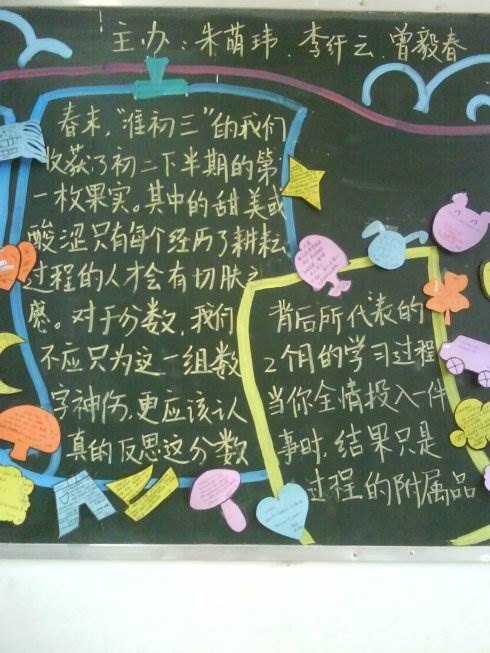 主办：朱萌玮、李纤云、曾毅春
春末，“准初三”的我们
收获了初二下半期的第
一枚果实。其中的甜美或
酸涩只有每个经历了耕耘
过程的人才会有切肤之
感。对于分数，我们
不应只为这一组数
字神伤，更应该认
真的反思这分数
背后所代表的
2个月的学习过程
当你全情投入一件
事时，结果只是
过程的附属品